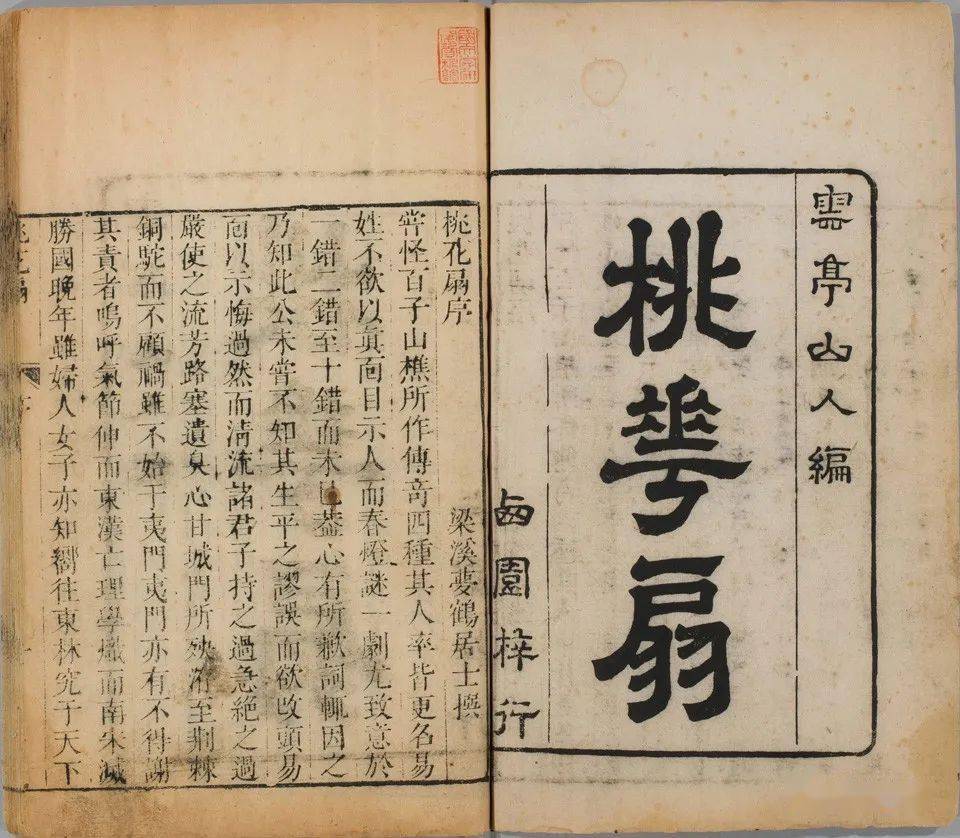 雲亭山人編
桃華扇
西園梓行
桃花扇序
梁溪夢鶴居士撰
嘗怪百子山樵所作傳奇四種其人率皆更名易
姓不欲以眞面目示人而春燈謎一劇尤致意於
一錯二錯至十錯而未已葢心有所歉詞輒因之
乃知此公未嘗不知其生平之謬誤而欲改頭易
面以示悔過然而淸流諸君子持之過急絕之過
嚴使之流芳路塞遺臭心甘城門所殃洊至荆棘
銅駝而不顧禍雖不始于夷門夷門亦有不得謝
其責者嗚呼氣節伸而東漢亡理學熾而南宋滅
勝國晚年雖婦人女子亦知嚮往東林究于天下
桃花扇